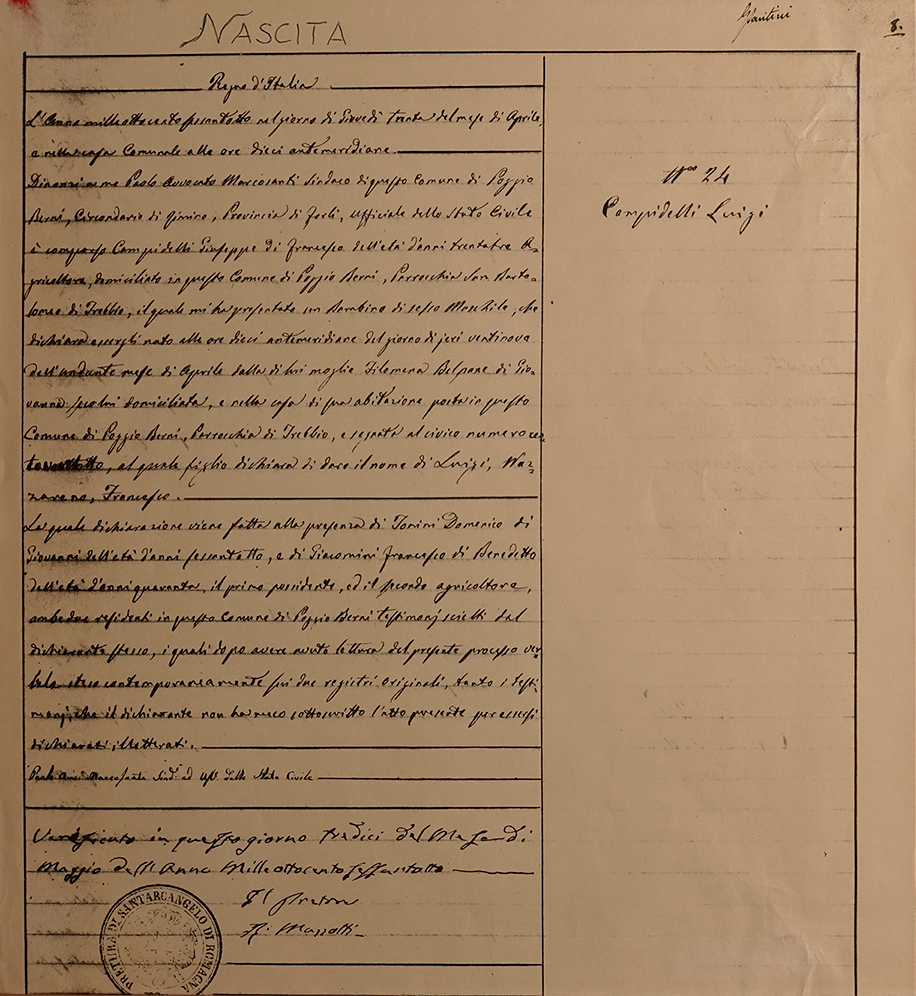 NASCITA
8.
Regno d'Italia
L'Anno mille ottocento sessantotto nel giorno di Giovedì trenta del mese di Aprile,
e nella casa Comunale alle ore dieci antemeridiane.
Dinanzi a me Paolo Avvocato Marcosanti Sindaco di questo Comune di Poggio
Berni, Circondario di Rimini, Provincia di Forlì, Uffiziale dello Stato Civile
è comparso Campidelli Giuseppe di Francesco dell'età d'anni trentatre A-
gricoltore, domiciliato in questo Comune di Poggio Berni, Parrocchia San Barto-
lomeo di Trebbio, il quale mi ha presentato un Bambino di sesso Maschile, che
dichiara essergli nato alle ore dieci antemeridiane del giorno di jeri ventinove
dell'andante mese di Aprile dalla di lui moglie Filomena di Gio-
vanni seco lui domiciliata, e nella casa di sua abitazione posta in questo
Comune di Poggio Berni, Parrocchia di Trebbio, e segnata al civico numero cen-
totto, al quale figlio dichiara di dare il nome di Luigi, Na-
zzareno, Francesco.
La quale dichiarazione viene fatta alla presenza di Tonini Domenico di
Giovanni dell'età d'anni sessantotto, e di Giacomini Francesco di Benedetto
dell'età d'anni quaranta, il primo possidente, ed il secondo agricoltore,
ambedue residenti in questo Comune di Poggio Berni testimonj scielti dal
dichiarante stesso, i quali dopo avere avuto lettura del presente processo ver-
bale steso contemporaneamente sui due registri originali, tanto i testi-
monj, che il dichiarante non hanno sottoscritto l'atto presente per essersi
dichiarati illetterati.
Paolo Avv. Marcosanti Sind. ed Uff. dello Stato Civile
N° 24
Campidelli Luigi
Verificato in questo giorno tredici del Mese di
Maggio dell'Anno Milleottocento sessantotto
Il Pretore
PRETURA DI SANTARCANGELO DI ROMAGNA